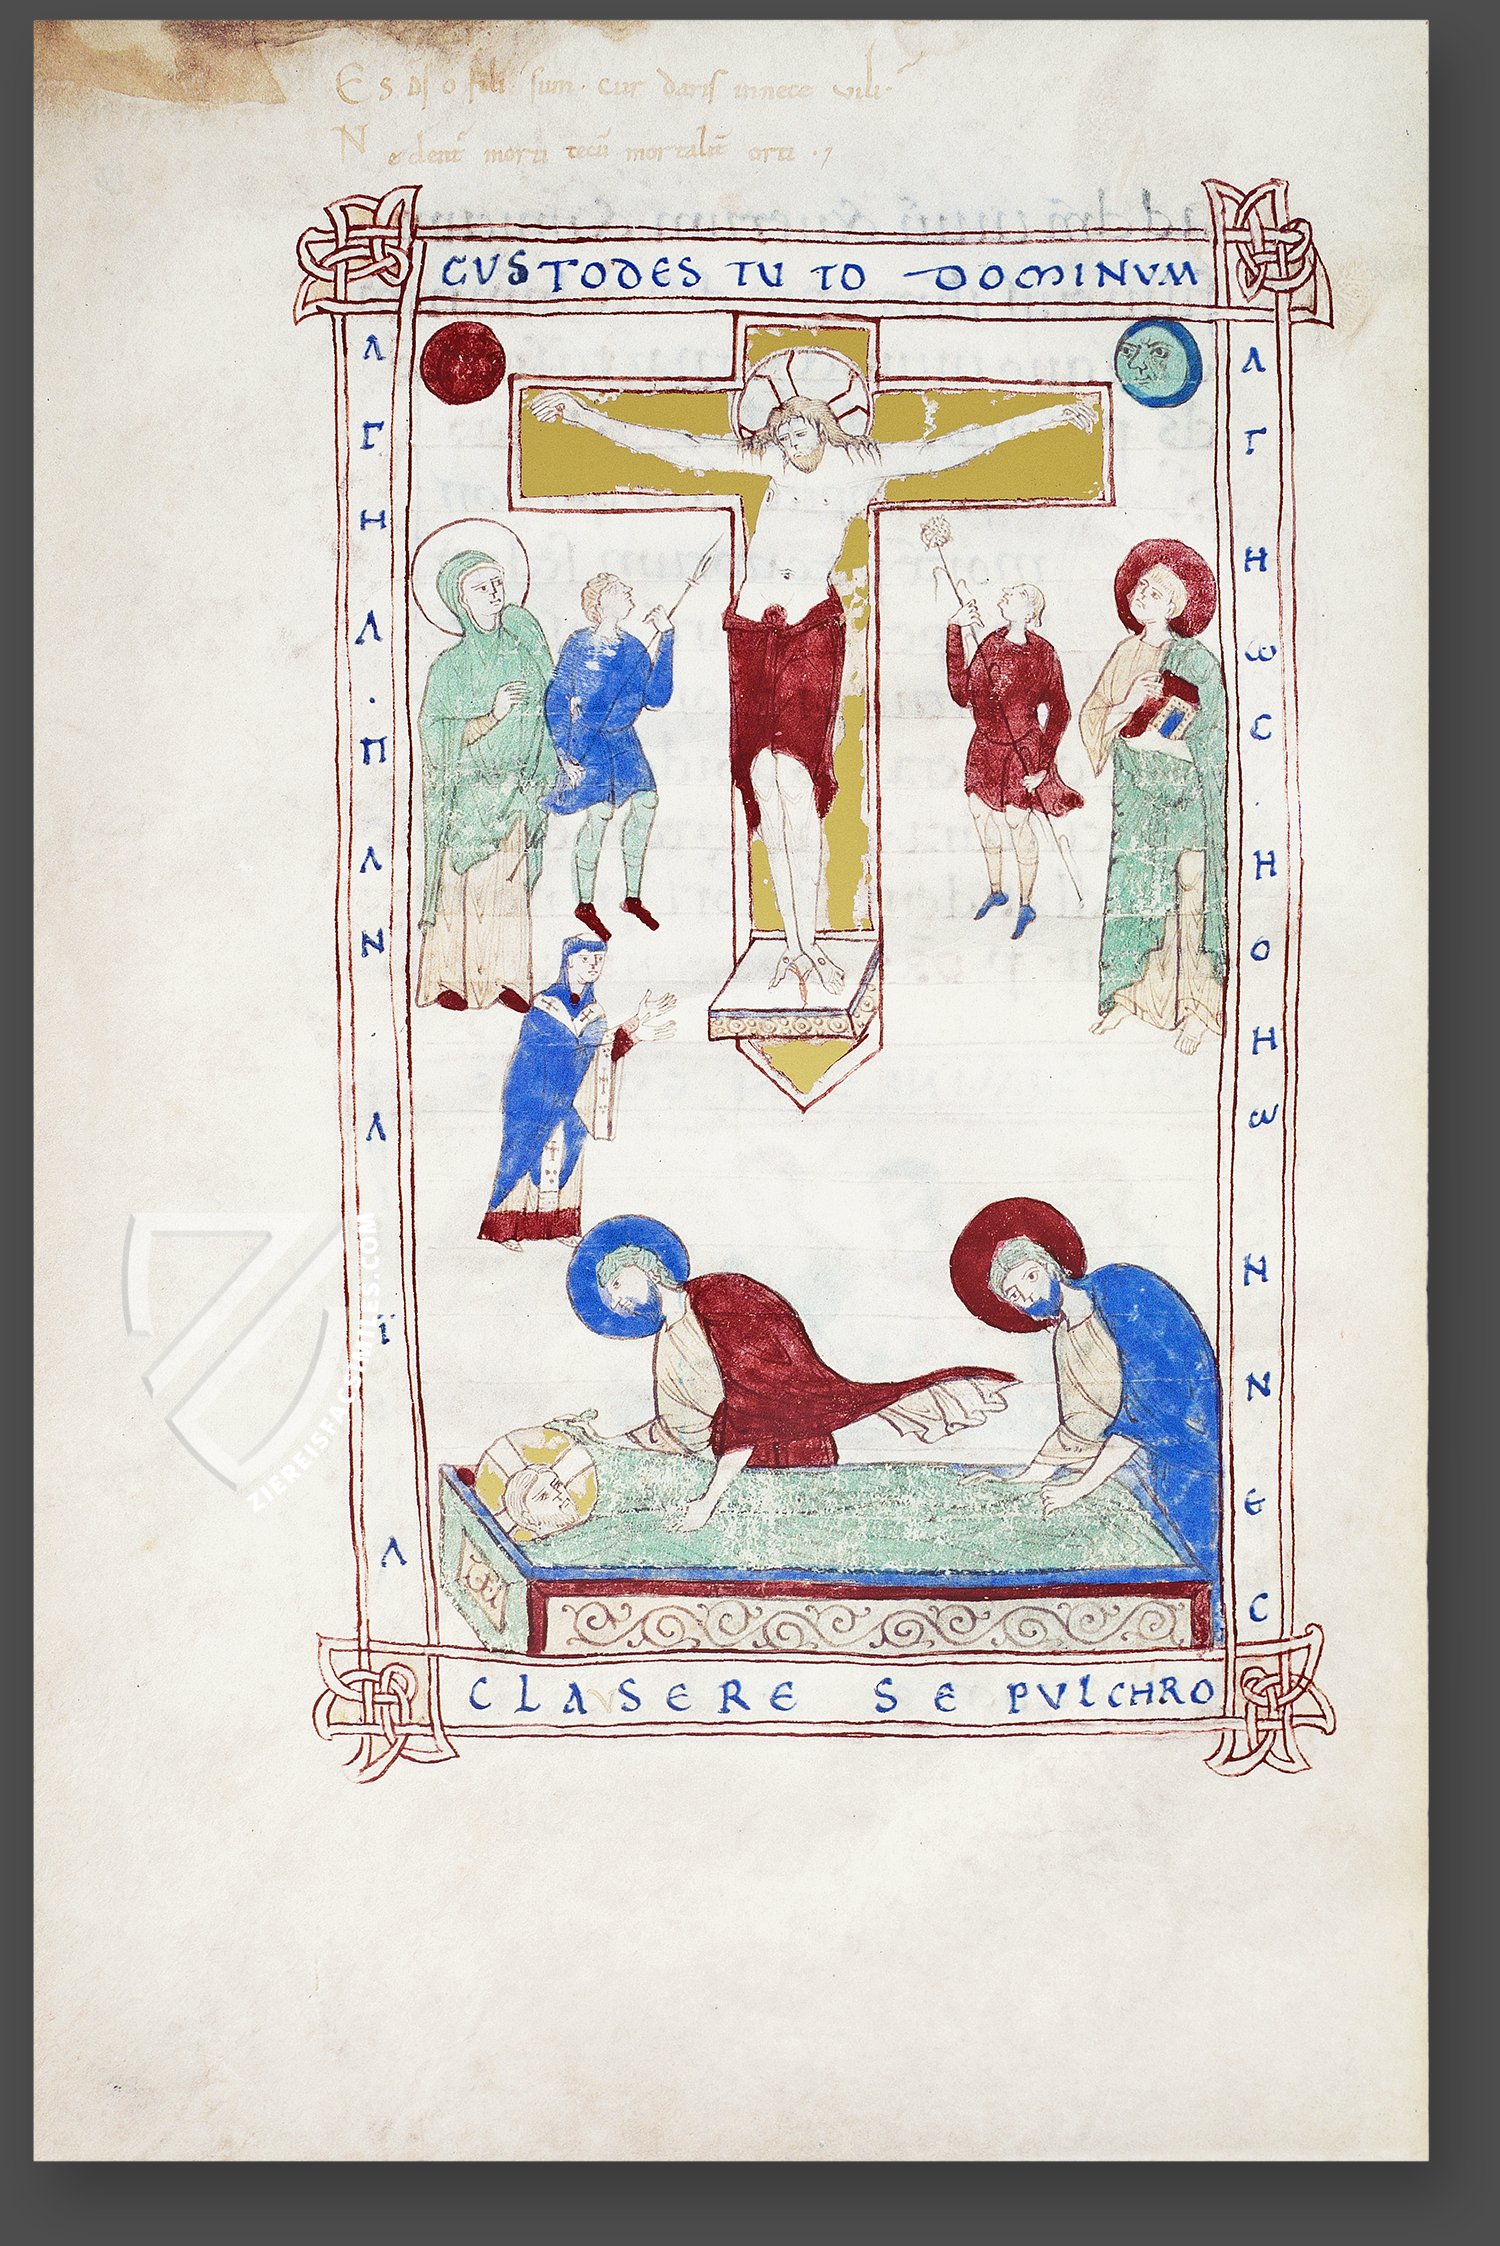 Es dſ o fili ſum. cur dariſ innece vili.
Ne dent̄ morti tecū mortalit̄ orti .7
CUSTODES TU TO DOMINVM
Λ
Γ
H
Λ
·
Π
Λ
N
·
Λ
Ϊ
Λ
Λ
Γ
H
ω
C
·
H
O
H
ω
N
N
Є
C
CLASERE SEPVLCHRO
ZIEREISFACSIMILES.COM